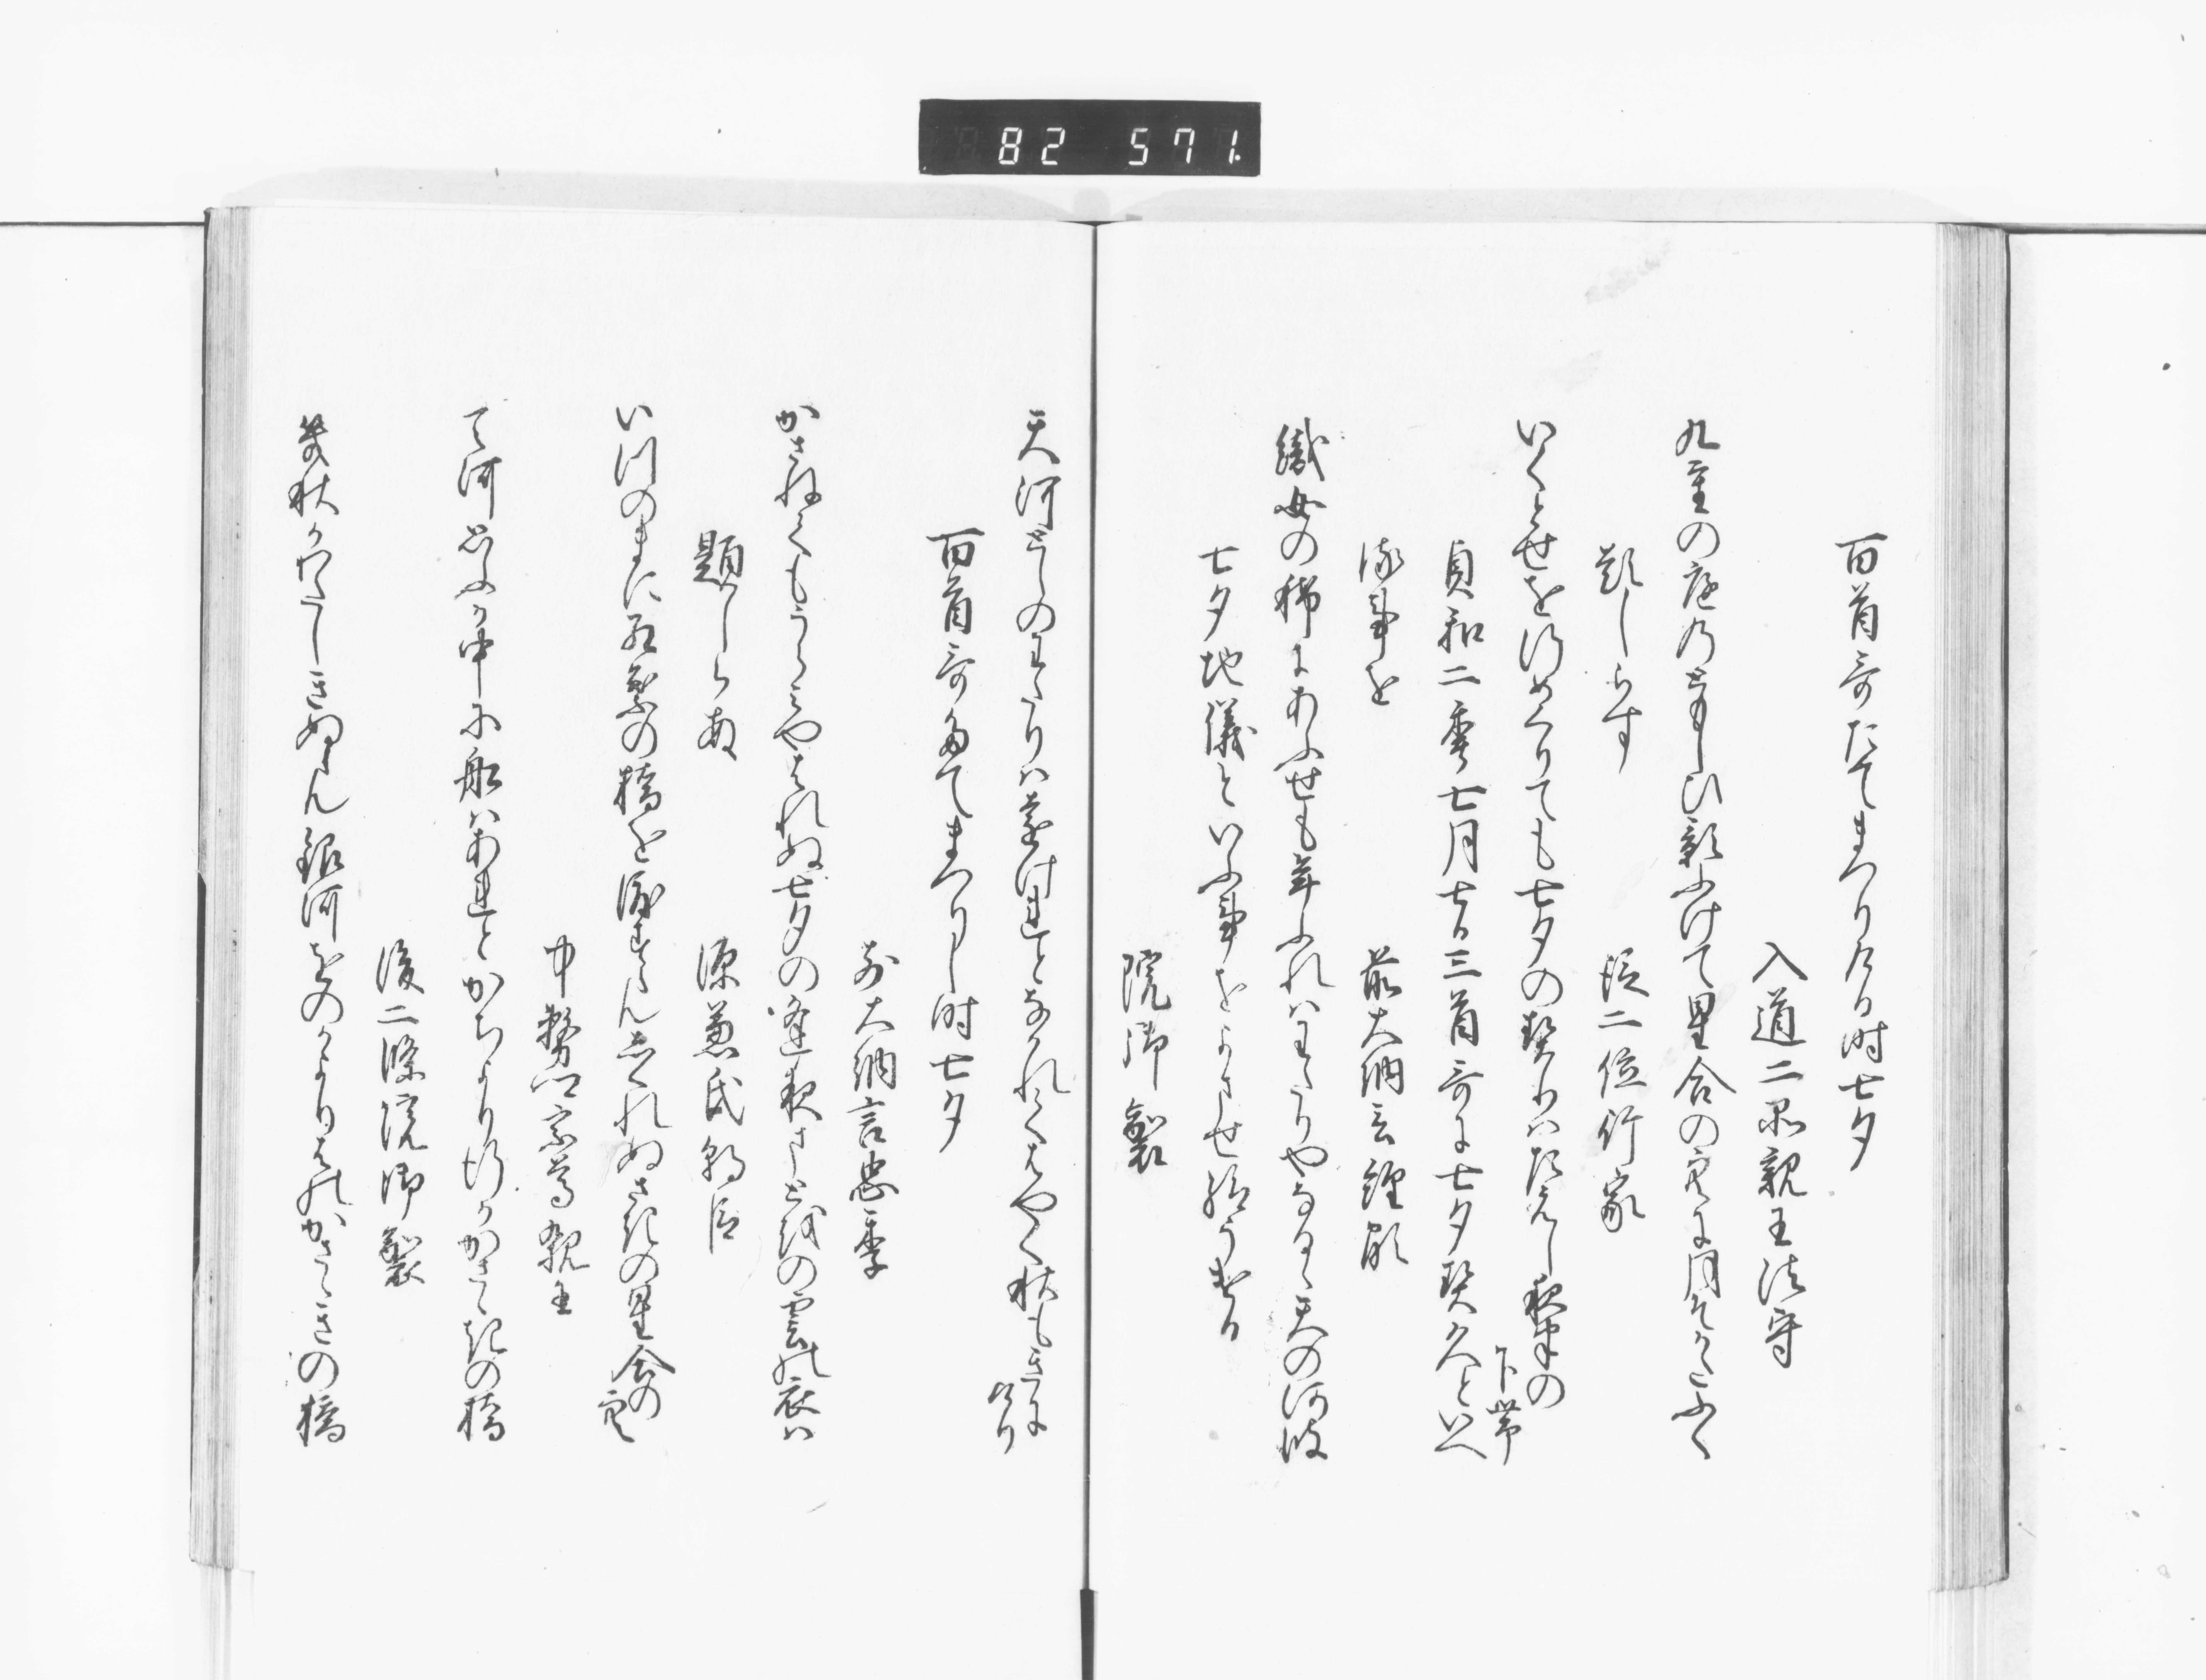 82 571
百首哥たてまつりける時七夕
入道二品親王法守
九重の庭のともしひ影ふけて星合の空に月そかたふく
題しらす
従二位行家
いくとせを行めくりても七夕の契りはたえし夜半の
下帯
貞和二年七月七日三首哥に七夕契久といへ
る事を
前大納言経顕
織女の稀にあふせも年ふれはわたりやなるゝ天の河波
七夕地儀といふ事をよませ給うける
院御製
天河としのわたりは遠けれとなかれてはやく秋もきに
けり
百首哥たてまつりし時七夕
前大納言忠季
かさねてもうらみやはれぬ七夕の逢夜まとをの雲の衣は
題しらす
源兼氏朝臣
いつのまに紅葉の橋を渡すらんしくれぬさきの星合の
空
中務卿宗尊親王
天河思ふか中に船はあれとかちより行かかさゝきの橋
後二條院御製
幾秋かわたしきぬらん銀河をのかよりはのかさゝきの橋